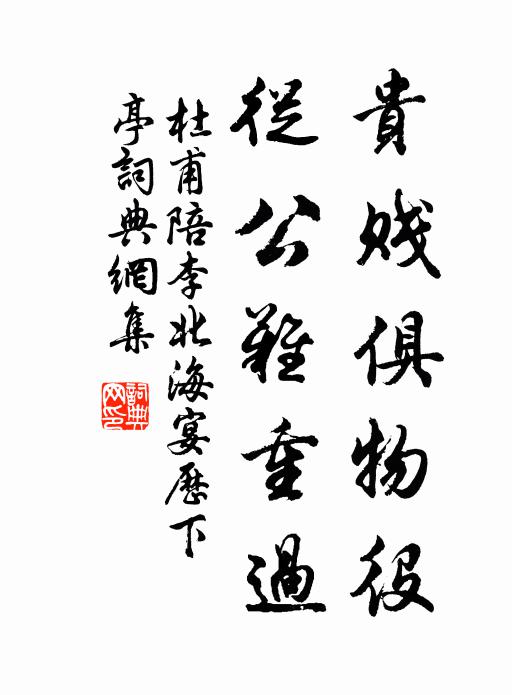 貴賤俱物役
從公難重過
杜甫陪李北海宴歷下
亭詞典網集
詞典
网印